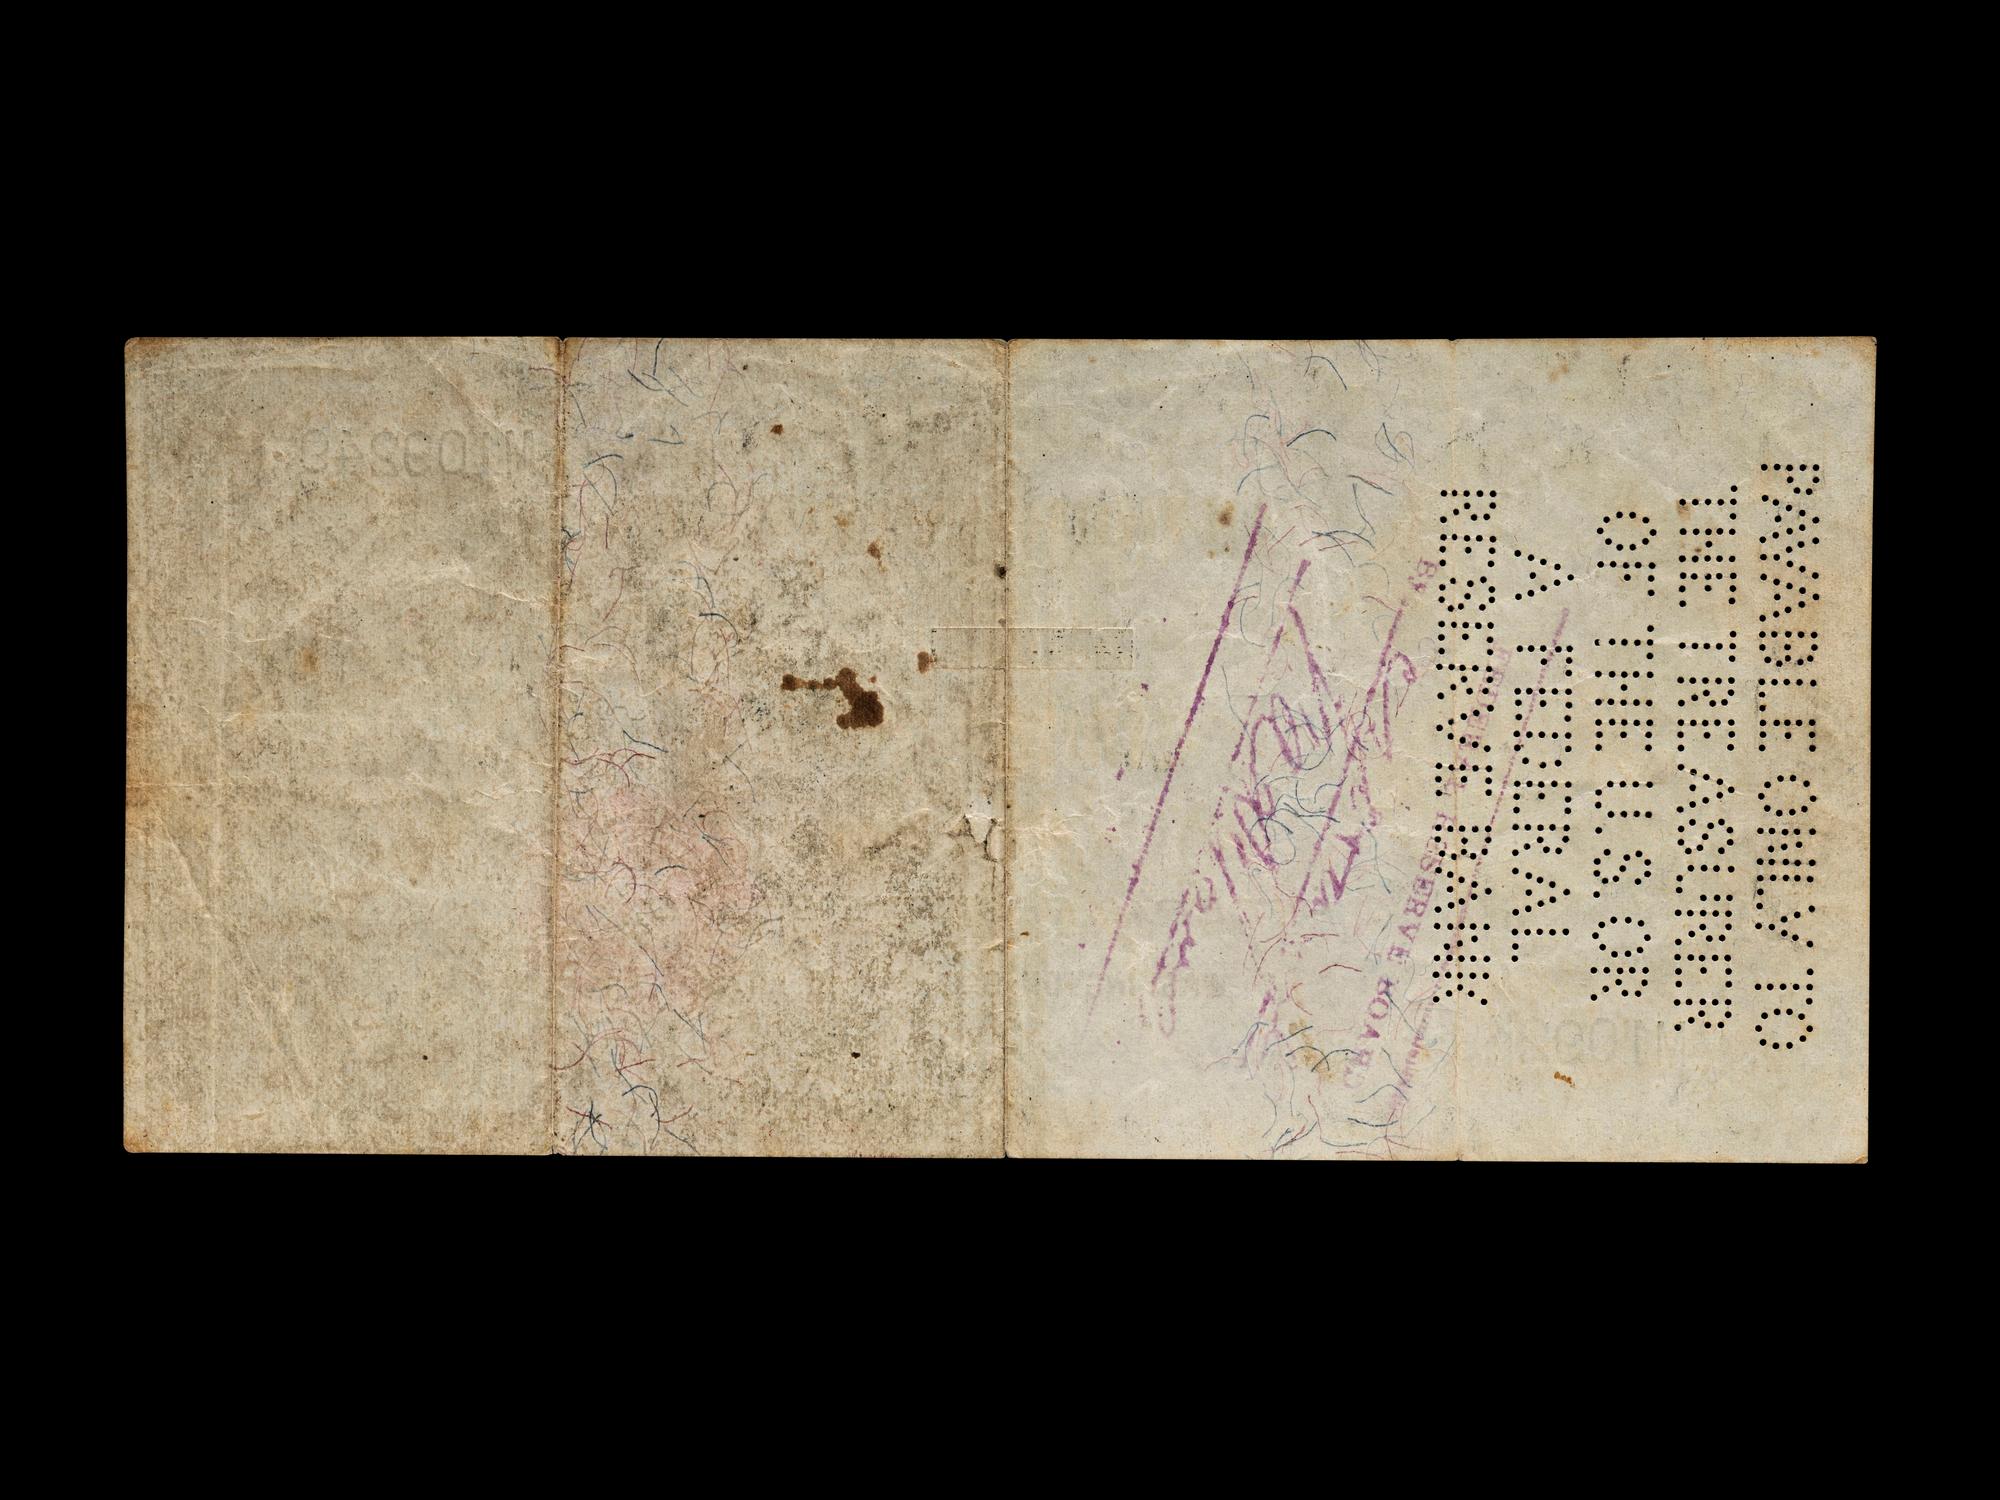 PAYABLE ONLY TO
THE TREASURER
OF THE U S OR
A FEDERAL
RESERVE BANK
FEDERAL RESERVE BOARD
By